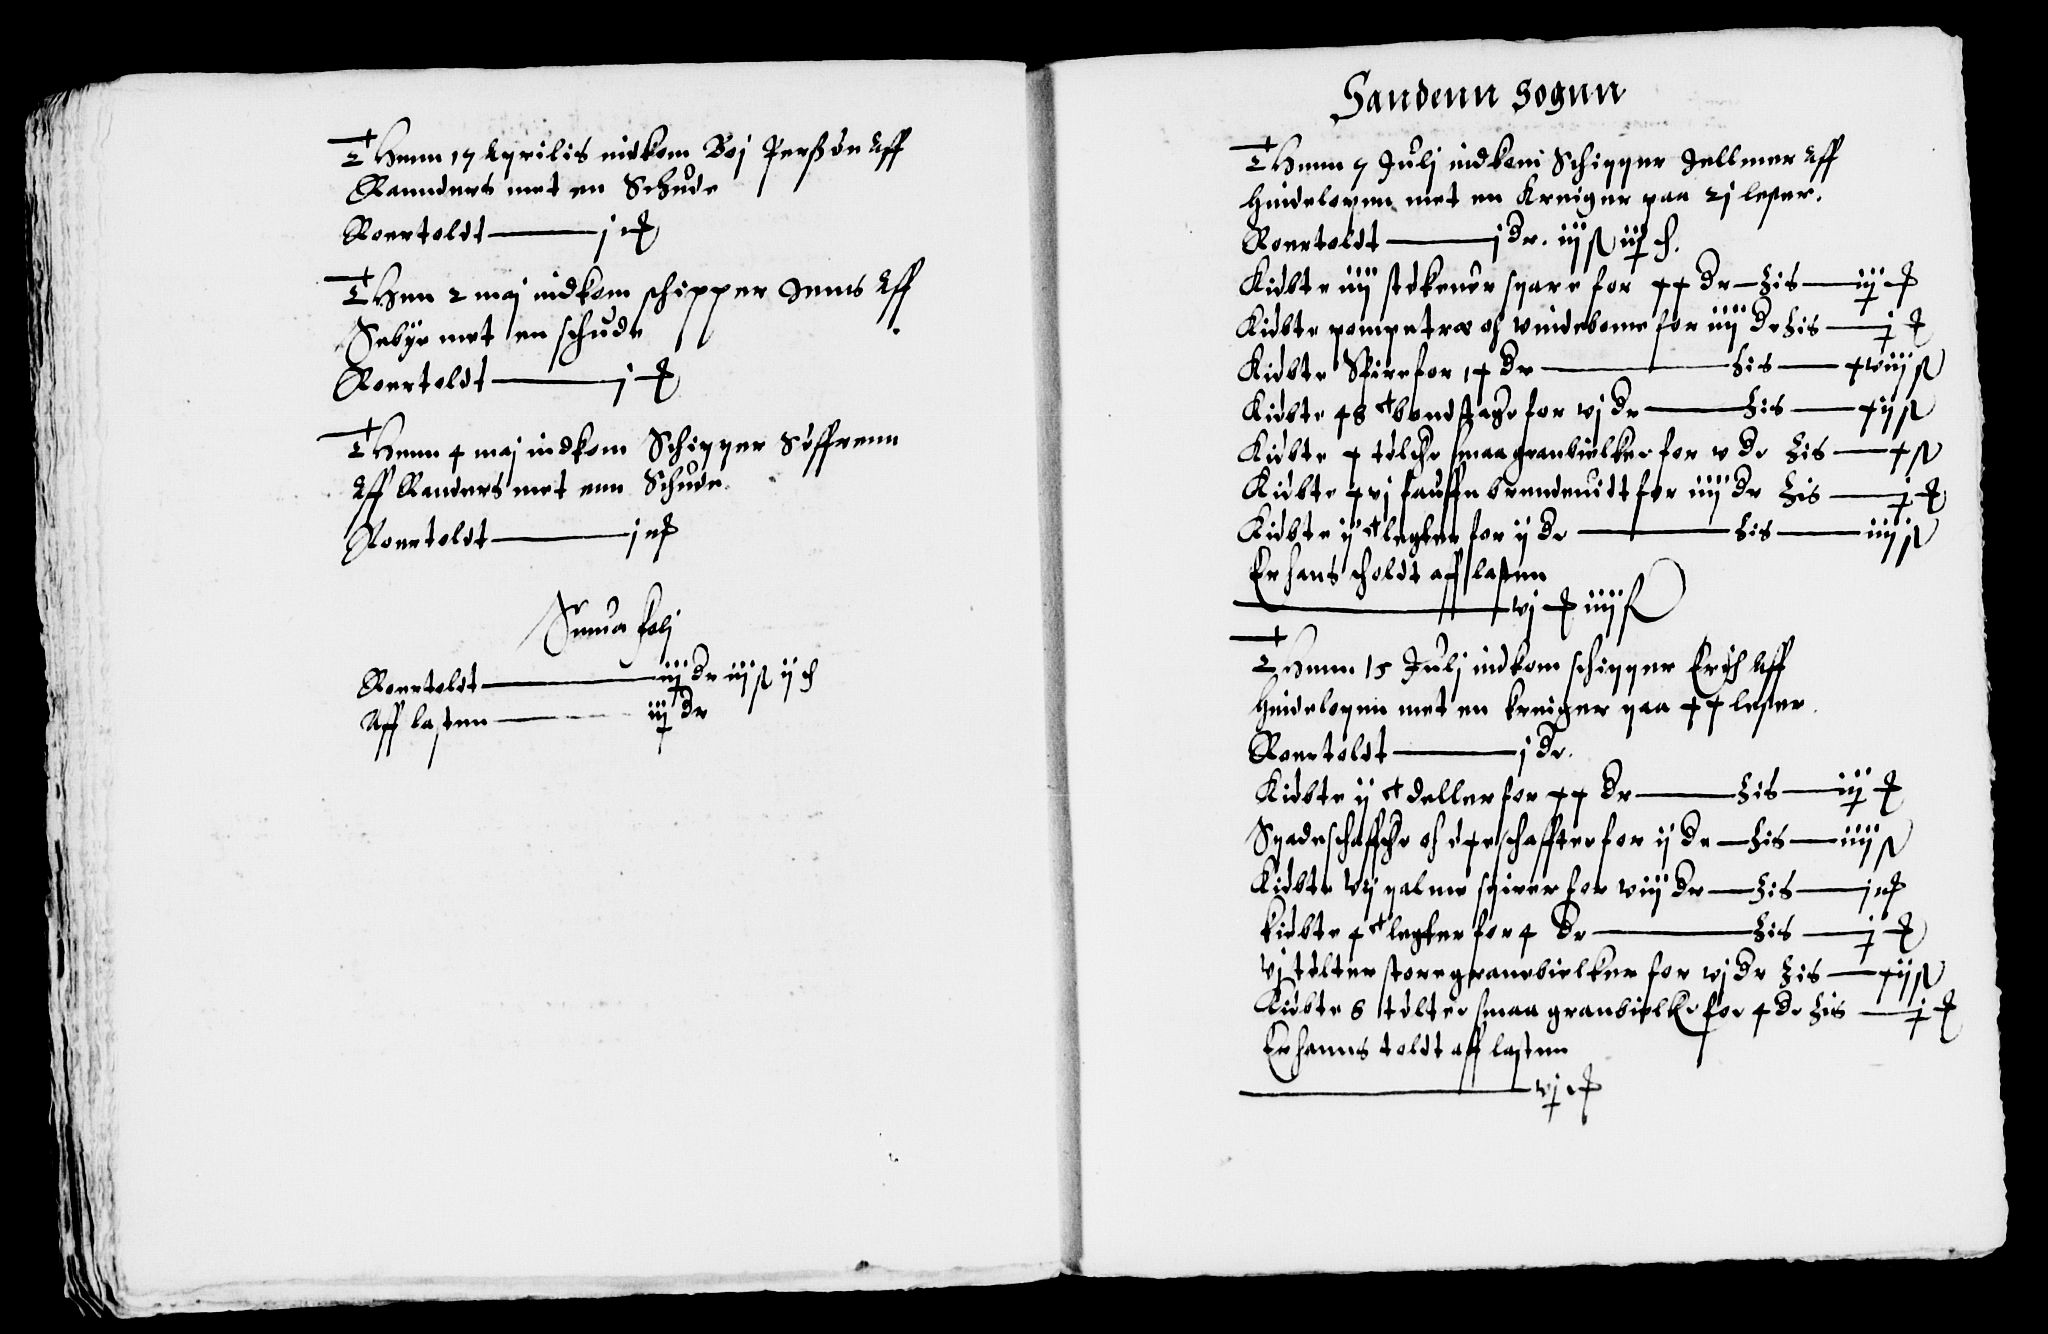 Thenn 17 Aprilis indkom Boj Perßøn Aff
Rannders met en Schude
Roertoldt j ort
Thenn 2 maj indkom schipper Jens Aff
Sebye met en schude
Roertoldt j ort
Thenn 4 maj indkom Schipper Søffrenn
Aff Randers met enn Schude
Roertoldt j ort
Suma folj
Roertoldt iij dr iij ß ij ch
Aff lasten iij dr
Sandenn Sognn
Thenn 9 Julj indkom Schipper Jellmer Aff
Hindelopen met en Kreiger paa 21 lester.
Roertoldt j dr. iij ß ij ch.
Kiøbte iiij støkener spare for xx dr his iij ort
Kiøbte pompetræ oc vindebome for iiij dr his j ort
Kiøbte Spire for 1x dr his xviij ß
Kiøbte 48 bondstage for vj dr his xij ß
Kiøbte x tølthe smaa granbielker for v dr his x ß
Kiøbte xvj fauffne brendeuidt for iiij dr his j ort
Kiøbte ij legter for ij dr his iiij ß
Er hans tholdt aff lasten
vj ort iiij ß
Thenn 15 Julj indkom schipper Erich Aff
Hindelopenn met en kreiger paa xx lester.
Roertoldt j dr.
Kiøbte ij deller for xx dr his iij ort
Spadeschaffthe oc øxeschaffter for ij dr his iiij ß
Kiøbte vij palme spirer for viij dr his j ort
kiøbte 4 legter for 4 dr his j ort
vj tølter store granebielker for vj dr his xij ß
Kiøbte 8 tølter smaa granbielke for 4 dr his j ort
Er hanns toldt aff lastenn
vj ort